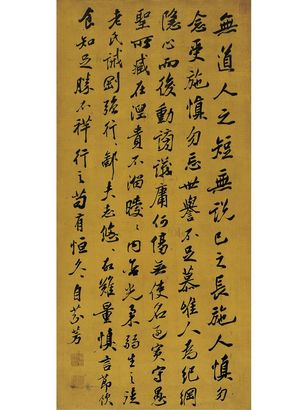 無道人之短無説己之長施人慎勿
念受施慎勿忘世譽不足慕惟仁為紀綱
隱心而後動謗議庸何傷無使名過實守愚
聖所臧在涅貴不淄曖々内含光柔弱生之徒
老氏誡剛强行々鄙夫志悠々故難量慎言節飲
食知足勝不祥行之苟有恒久々自芬芳